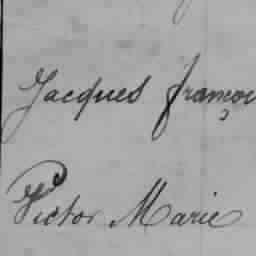 Jacques françoi
Victor Marie